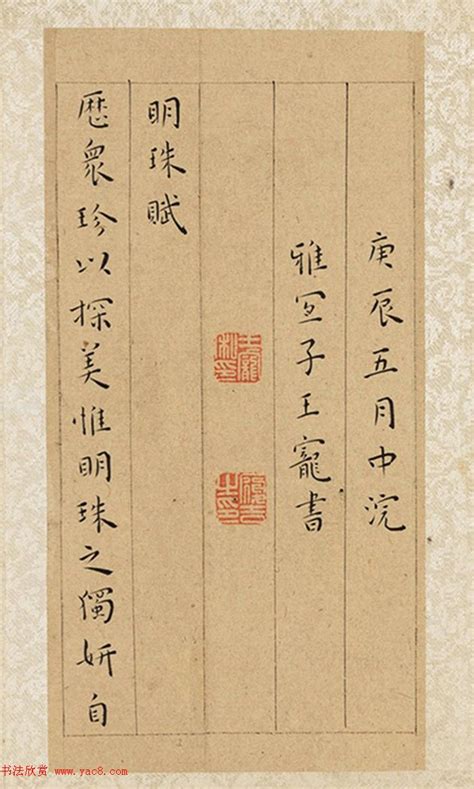 庚辰五月中浣
雅宜子王寵書
王寵私印
明珠賦
歷衆珍以探美惟明珠之獨妍自
书法欣赏 www.yac8.com